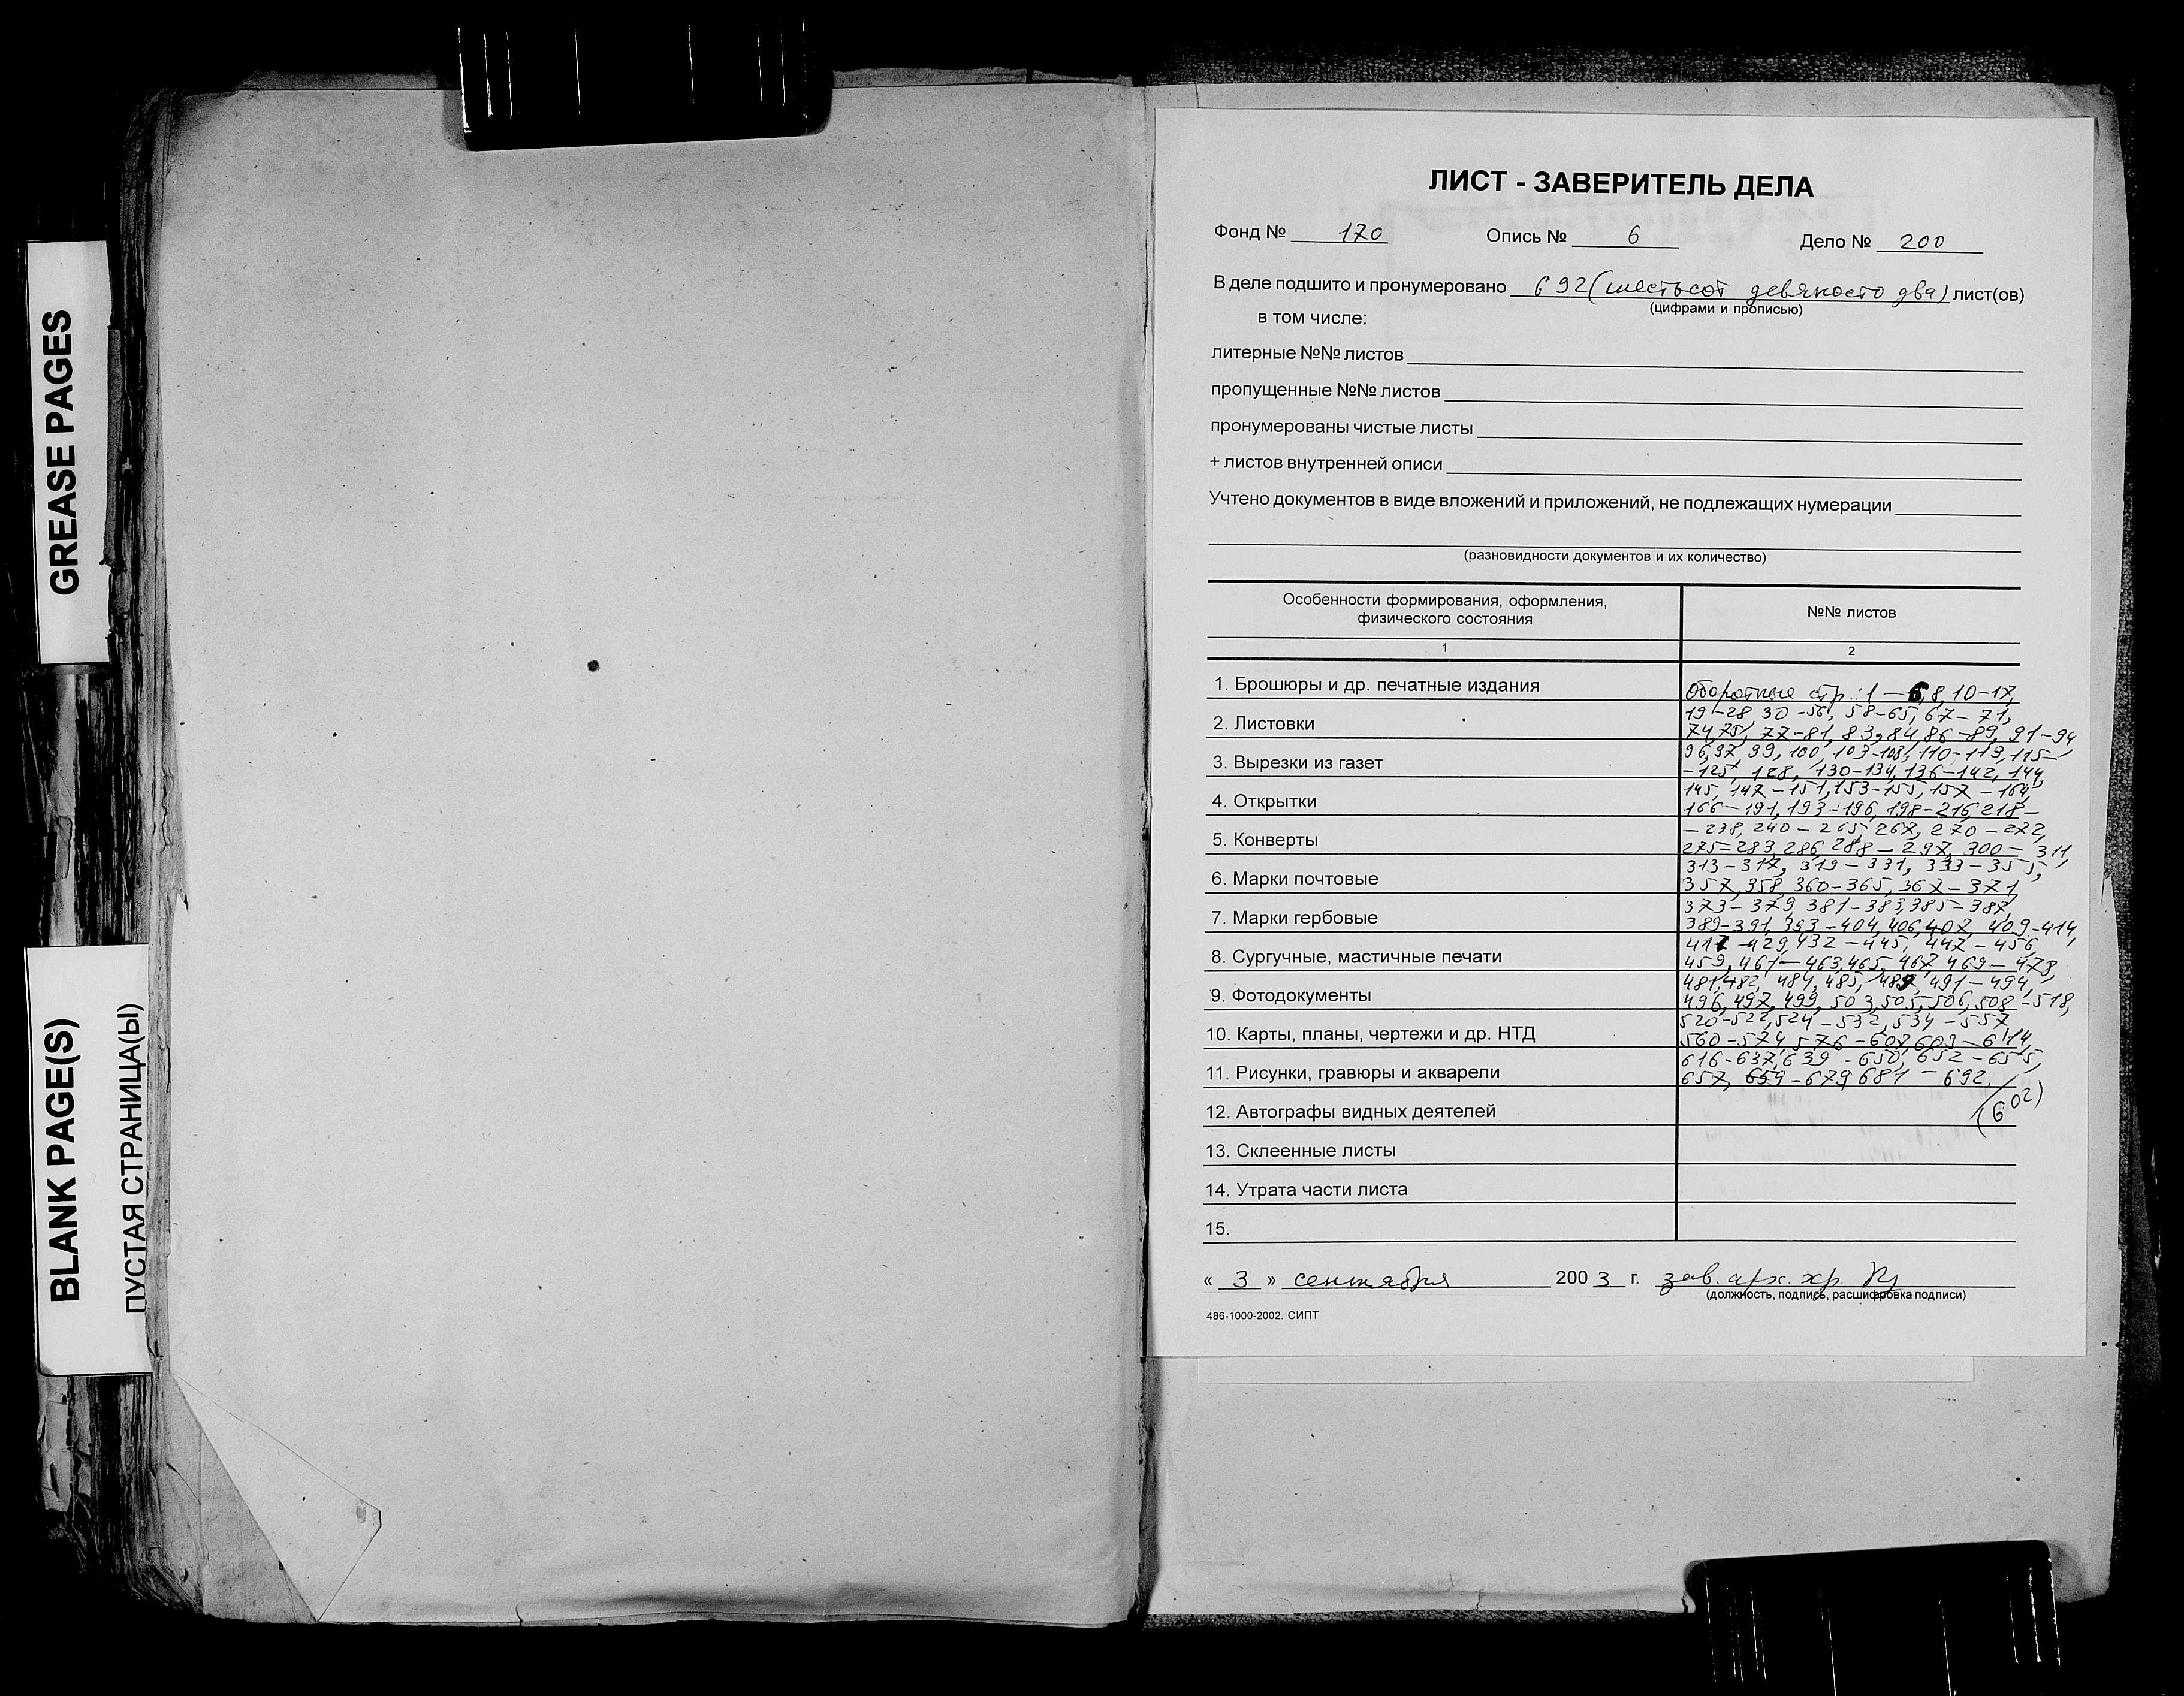 GREASE PAGES
BLANK PAGE(S)
ПУСТАЯ СТРАНИЦА(Ы)
ЛИСТ - ЗАВЕРИТЕЛЬ ДЕЛА
Фонд № 170 Опись № 6 Дело № 200
В деле подшито и пронумеровано 692 (шестьсот девяносто два) лист(ов)
(цифрами и прописью)
в том числе:
литерные №№ листов
пропущенные №№ листов
пронумерованы чистые листы
+ листов внутренней описи
Учтено документов в виде вложений и приложений, не подлежащих нумерации
(разновидности документов и их количество)
Особенности формирования, оформления,
физического состояния
№№ листов
1
2
1. Брошюры и др. печатные издания
2. Листовки
3. Вырезки из газет
4. Открытки
5. Конверты
6. Марки почтовые
7. Марки гербовые
8. Сургучные, мастичные печати
9. Фотодокументы
10. Карты, планы, чертежи и др. НТД
11. Рисунки, гравюры и акварели
12. Автографы видных деятелей
13. Склеенные листы
14. Утрата части листа
15.
Оборотные стр.: 1 - 6, 8, 10-17,
19-28, 30-56, 58-65, 67-71,
74, 75, 77-81, 83, 84, 86-89, 91-94
96, 97, 99, 100, 103-108, 110-113, 115-
-125, 128, 130-134, 136-142, 144,
145, 147-151, 153-155, 157-164,
166-191, 193-196, 198-216, 218-
-238, 240-265, 267, 270-272,
275-283, 286, 288-297, 300-311,
313-317, 319-331, 333-355,
357, 358, 360-365, 367-371,
373-379, 381-383, 385-387,
389-391, 393-404, 406, 407, 409-414,
417-429, 432-445, 447-456,
459, 461-463, 465, 467, 469-478,
481, 482, 484, 485, 489, 491-494,
496, 497, 499, 503, 505, 506, 508-518,
520-522, 524-532, 534-557,
560-574, 576-607, 609-614,
616-637, 639-650, 652-655,
657, 659-679, 681-692.
(602)
« 3 » сентября 2003 г. зав. арх. хр.
(должность, подпись, расшифровка подписи)
486-1000-2002. СИПТ